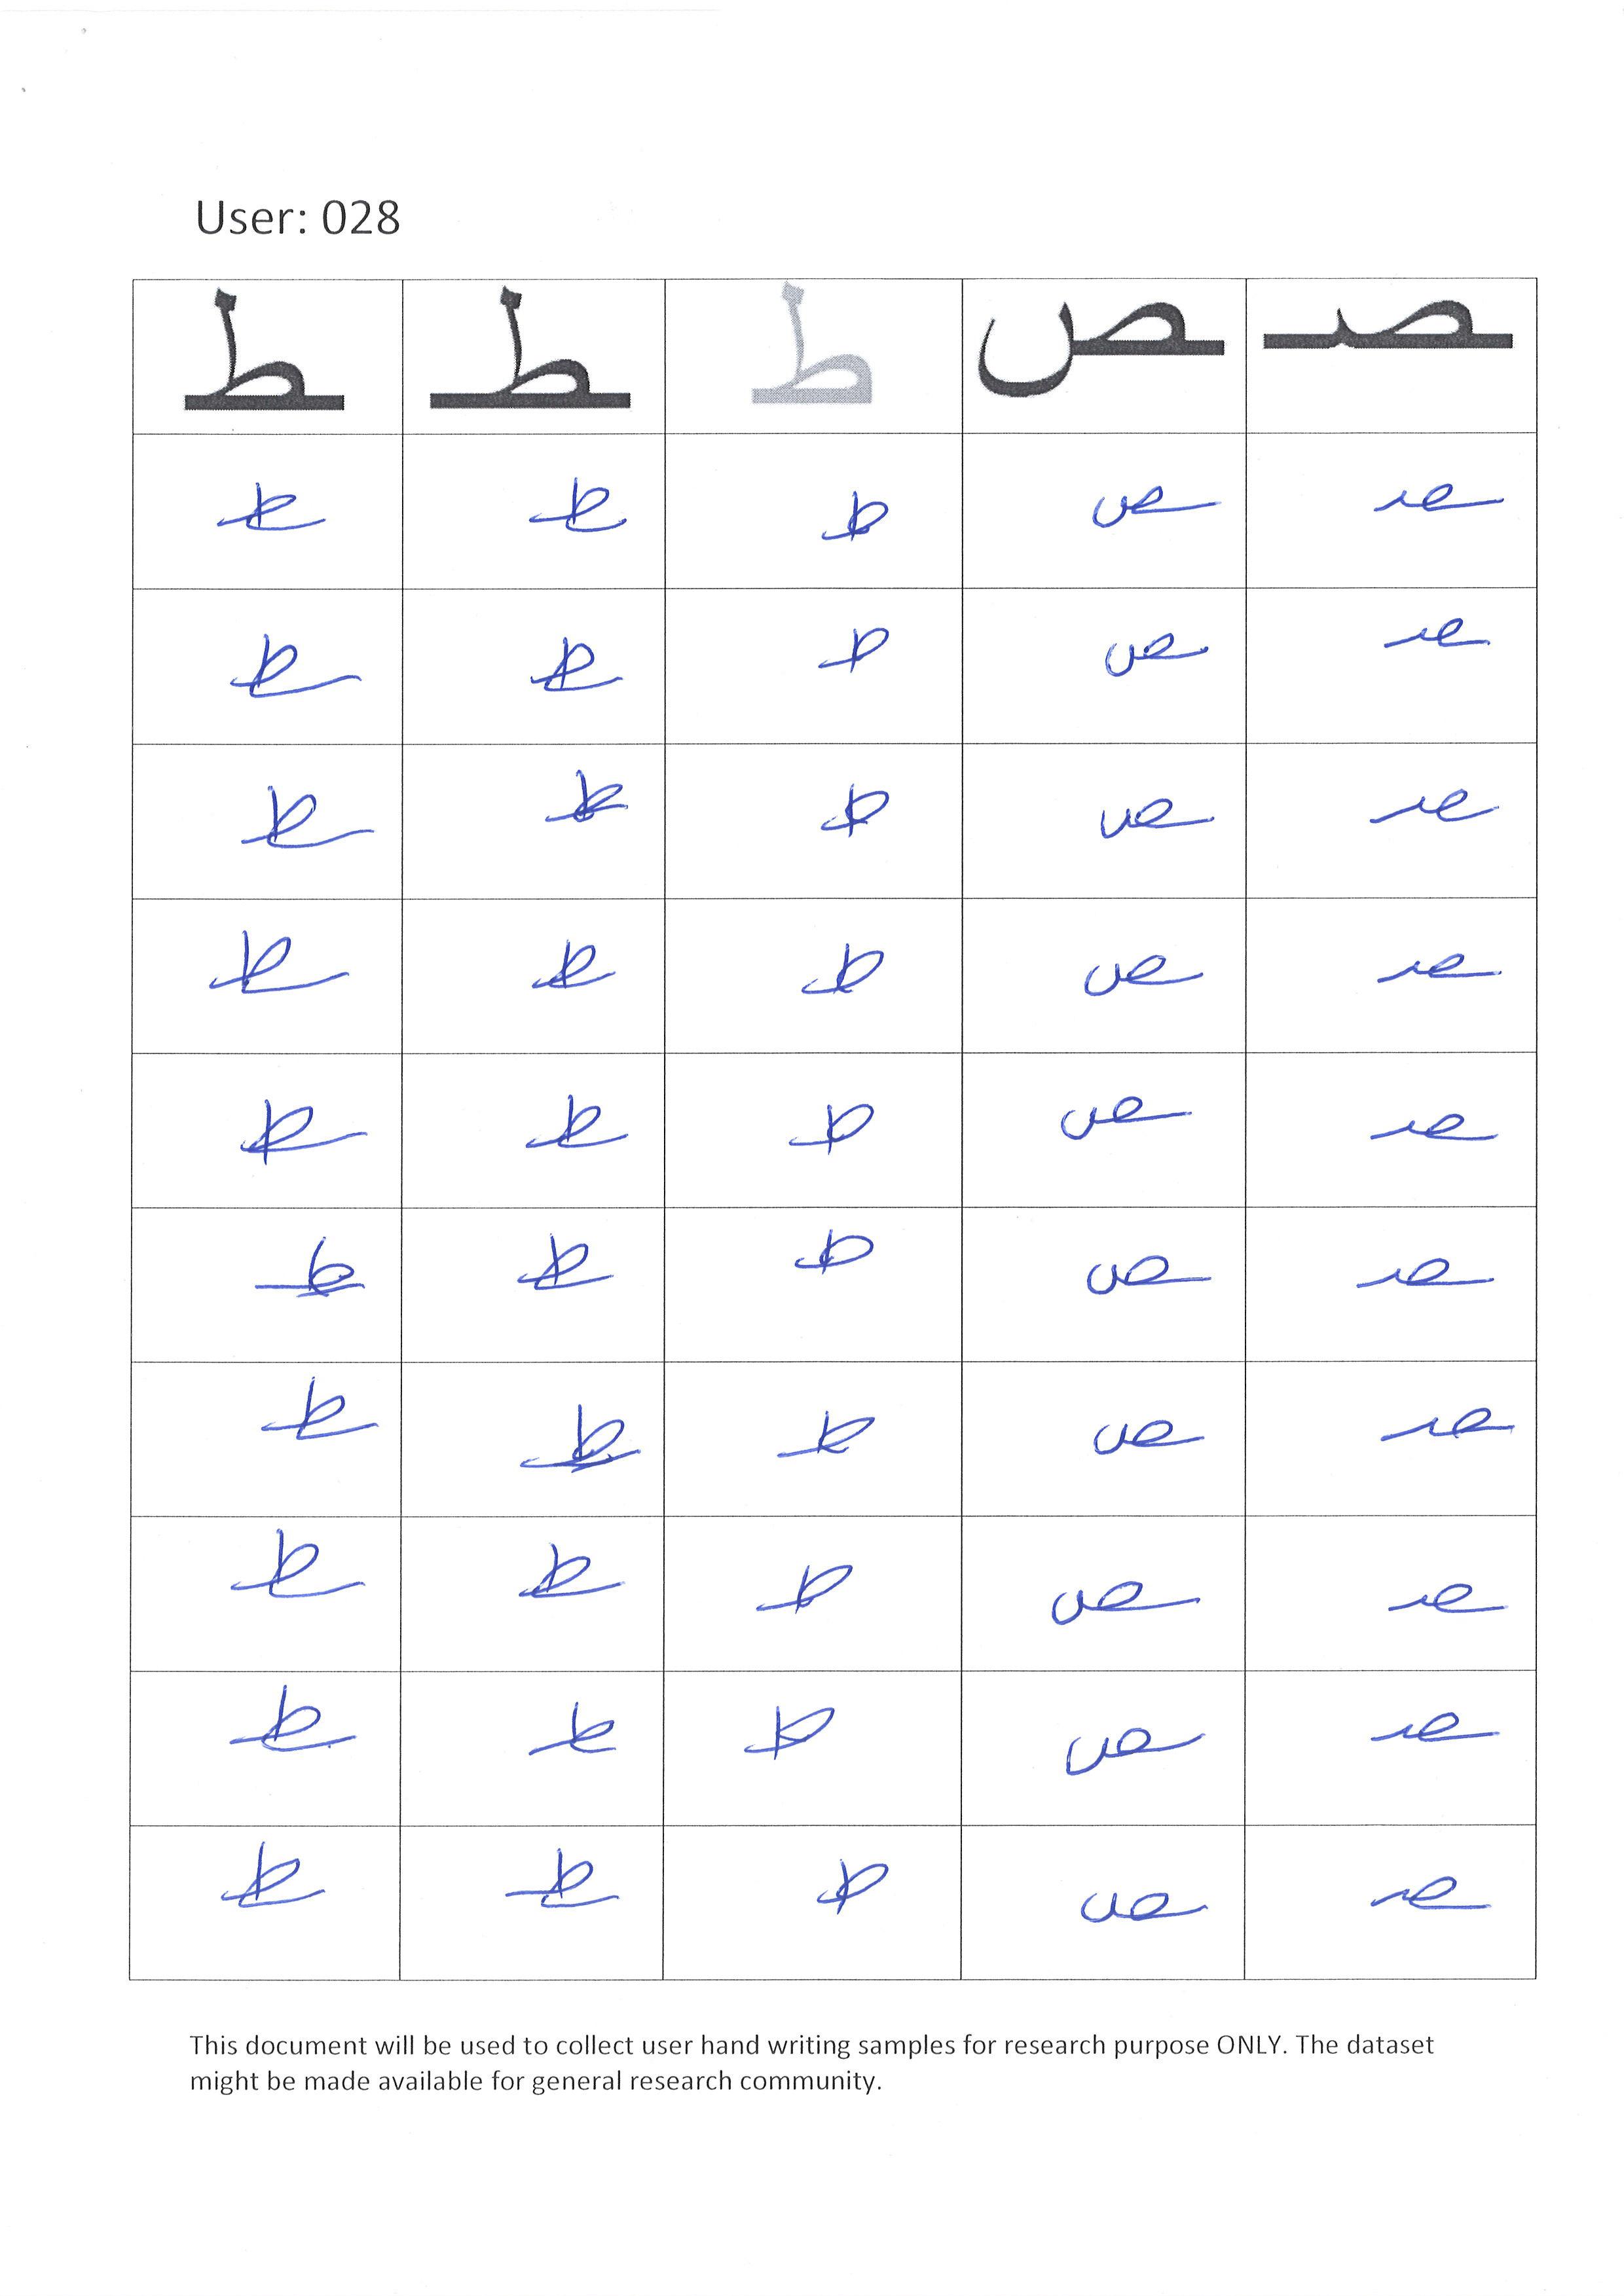 User: 028
ـط ـطـ ط ـص ـصـ
ـط ـطـ ط ـص ـصـ
ـط ـطـ ط ـص ـصـ
ـط ـطـ ط ـص ـصـ
ـط ـطـ ط ـص ـصـ
ـط ـطـ ط ـص ـصـ
ـط ـطـ ط ـص ـصـ
ـط ـطـ ط ـص ـصـ
ـط ـطـ ط ـص ـصـ
ـط ـطـ ط ـص ـصـ
ـط ـطـ ط ـص ـصـ
This document will be used to collect user hand writing samples for research purpose ONLY. The dataset
might be made available for general research community.